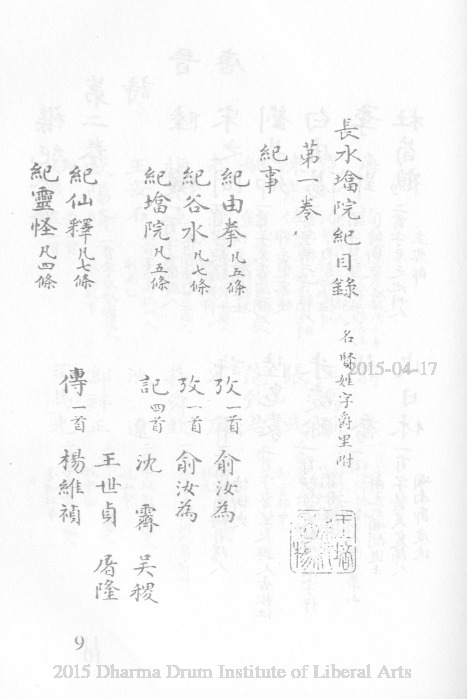 長水墖院紀目錄 名賢姓字爵里附
第一卷
紀事
紀由拳凡五條 攷一首 俞汝為
紀谷水凡七條 攷一首 俞汝為
紀墖院凡五條 記四首 沈霽 吴稷
王世貞 屠隆
紀仙釋凡七條 傳一首 楊維禎
紀靈怪凡四條
2015-04-17
9
2015 Dharma Drum Institute of Liberal Arts